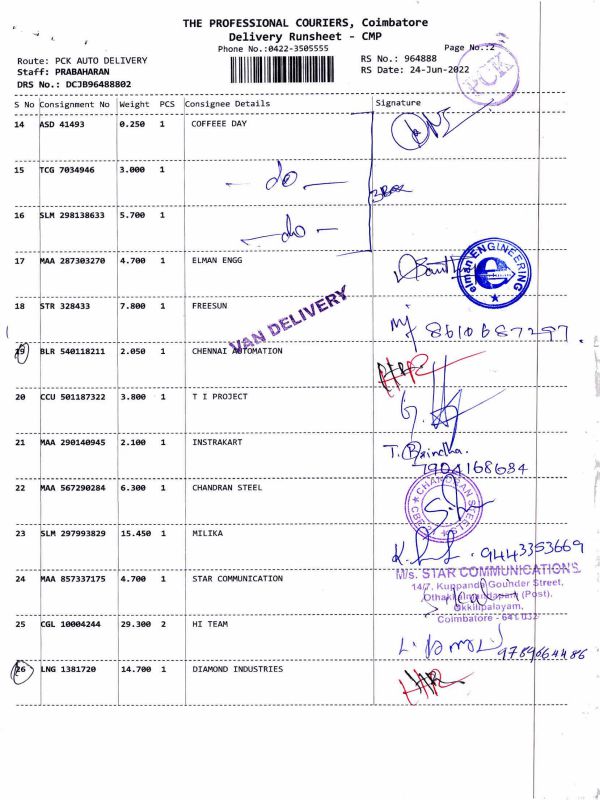 THE PROFESSIONAL COURIERS, Coimbatore
Delivery Runsheet - CMP
Phone No.:0422-3505555
Page No.:2
Route: PCK AUTO DELIVERY
RS No.: 964888
Staff: PRABAHARAN
RS Date: 24-Jun-2022
PCK
DRS No.: DCJB96488802
S No Consignment No Weight PCS Consignee Details Signature
14 ASD 41493 0.250 1 COFFEEE DAY
15 TCG 7034946 3.000 1 - do -
16 SLM 298138633 5.700 1 - do -
17 MAA 287303270 4.700 1 ELMAN ENGG
elman ENGINEERING
18 STR 328433 7.800 1 FREESUN 8610687297.
VAN DELIVERY
19 BLR 540118211 2.050 1 CHENNAI AUTOMATION
20 CCU 501187322 3.800 1 T I PROJECT
21 MAA 290140945 2.100 1 INSTRAKART T. Brindha.
7904168684
22 MAA 567290284 6.300 1 CHANDRAN STEEL
CHANDRAN STEELS
23 SLM 297993829 15.450 1 MILIKA 9443353669
24 MAA 857337175 4.700 1 STAR COMMUNICATION
M/s. STAR COMMUNICATIONS
14/7, Kuppanda Gounder Street,
(Post),
Okkilipalayam,
Coimbatore - 641 032
25 CGL 10004244 29.300 2 HI TEAM
9789664486
26 LNG 1381720 14.700 1 DIAMOND INDUSTRIES